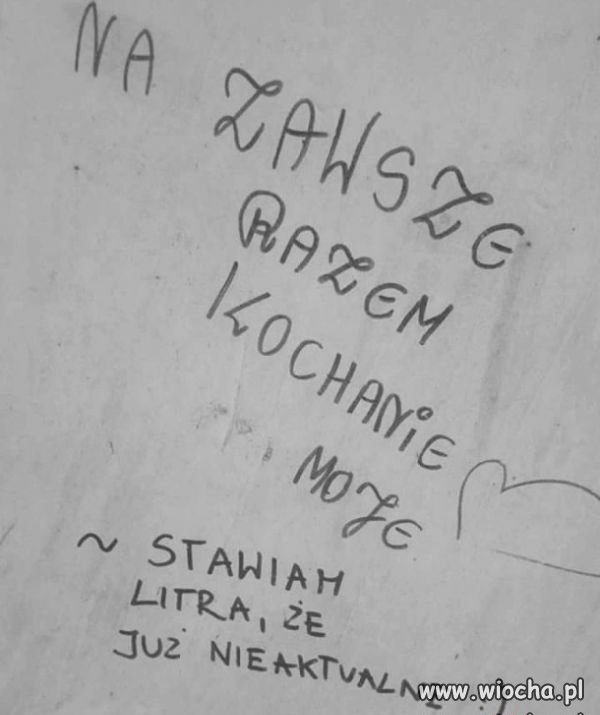 NA ZAWSZE
RAZEM
KOCHANiE
MOJE
~ STAWIAM
LITRA, ŻE
JUŻ NIEAKTUALNE
www.wiocha.pl